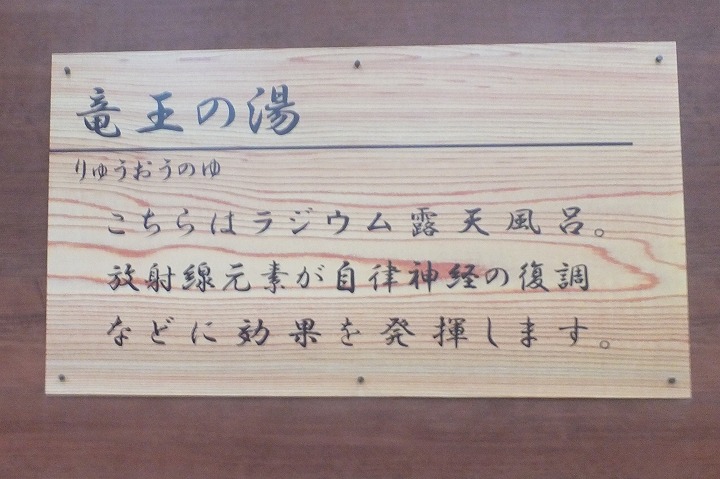 竜王の湯
りゅうおうのゆ
こちらはラジウム露天風呂。
放射線元素が自律神経の復調
などに効果を発揮します。